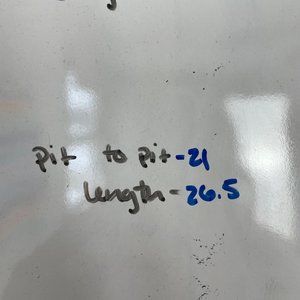 pit to pit-21
length-26.5